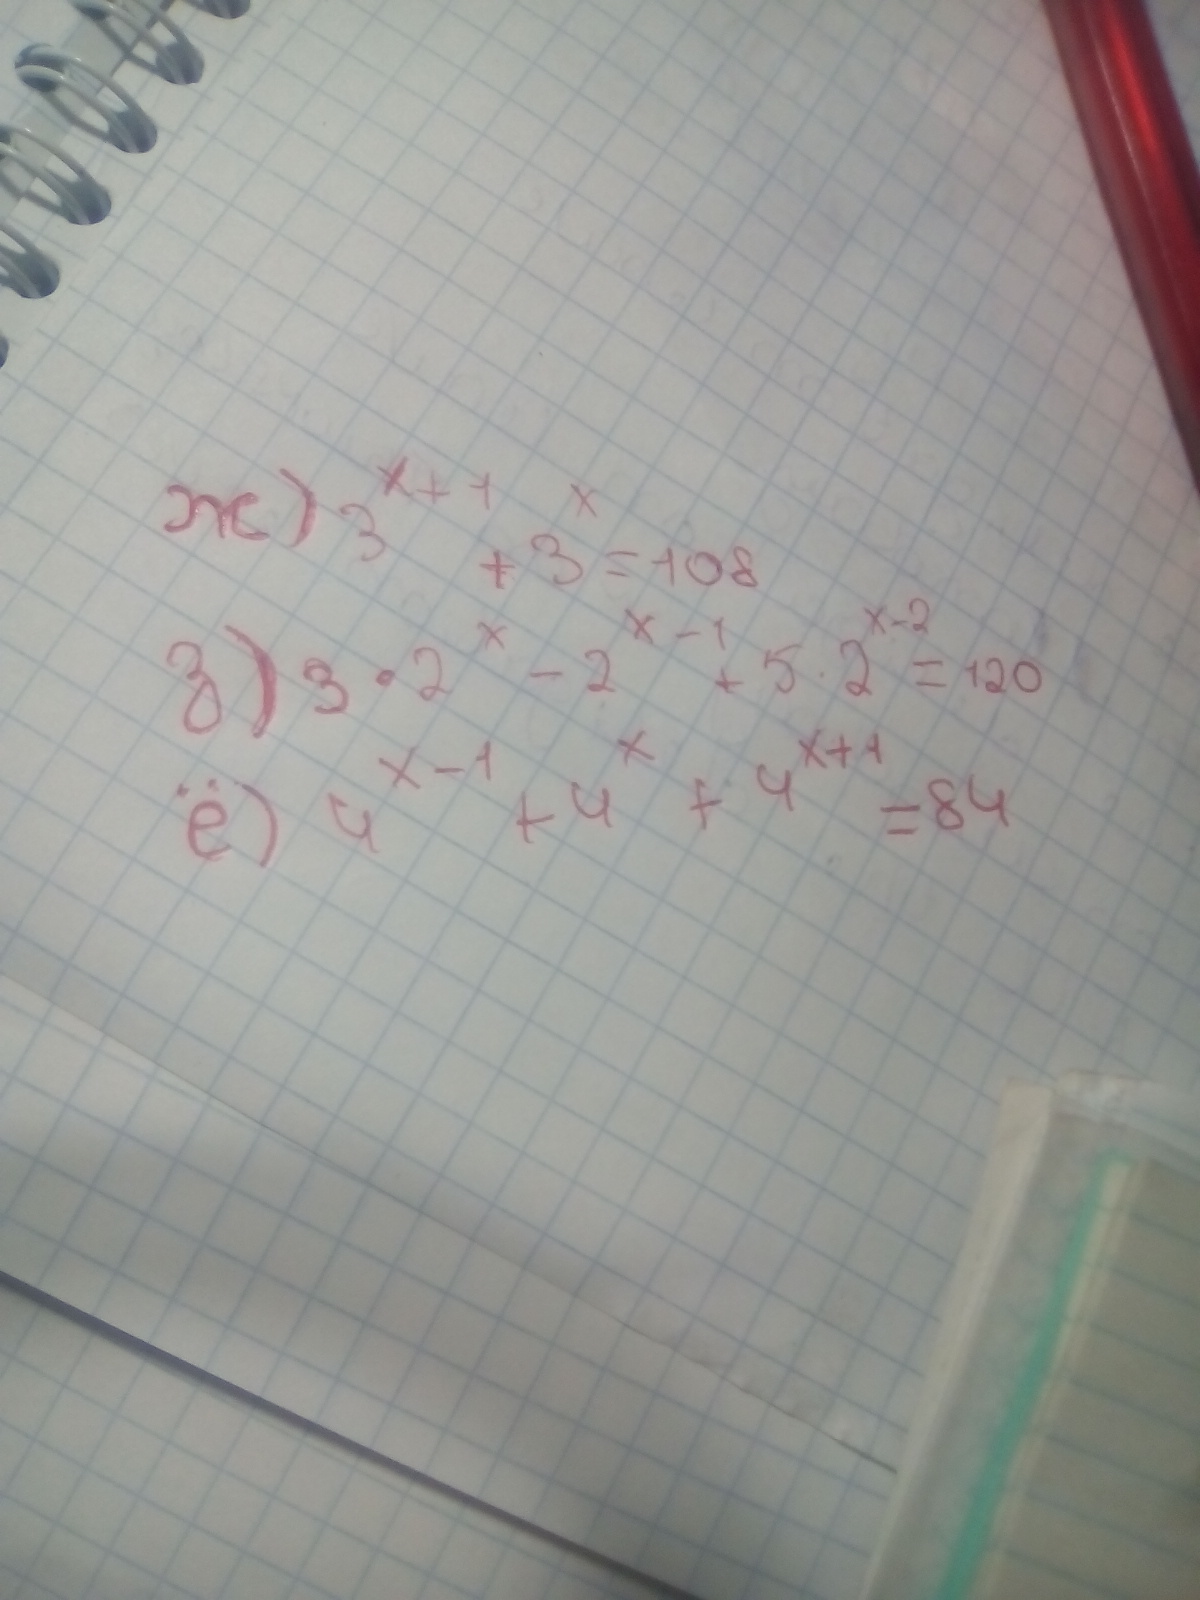 ж) 3^{x+1} + 3^x = 108
з) 3 · 2^x - 2^{x-1} + 5 · 2^{x-2} = 120
ё) 4^{x-1} + 4^x + 4^{x+1} = 84